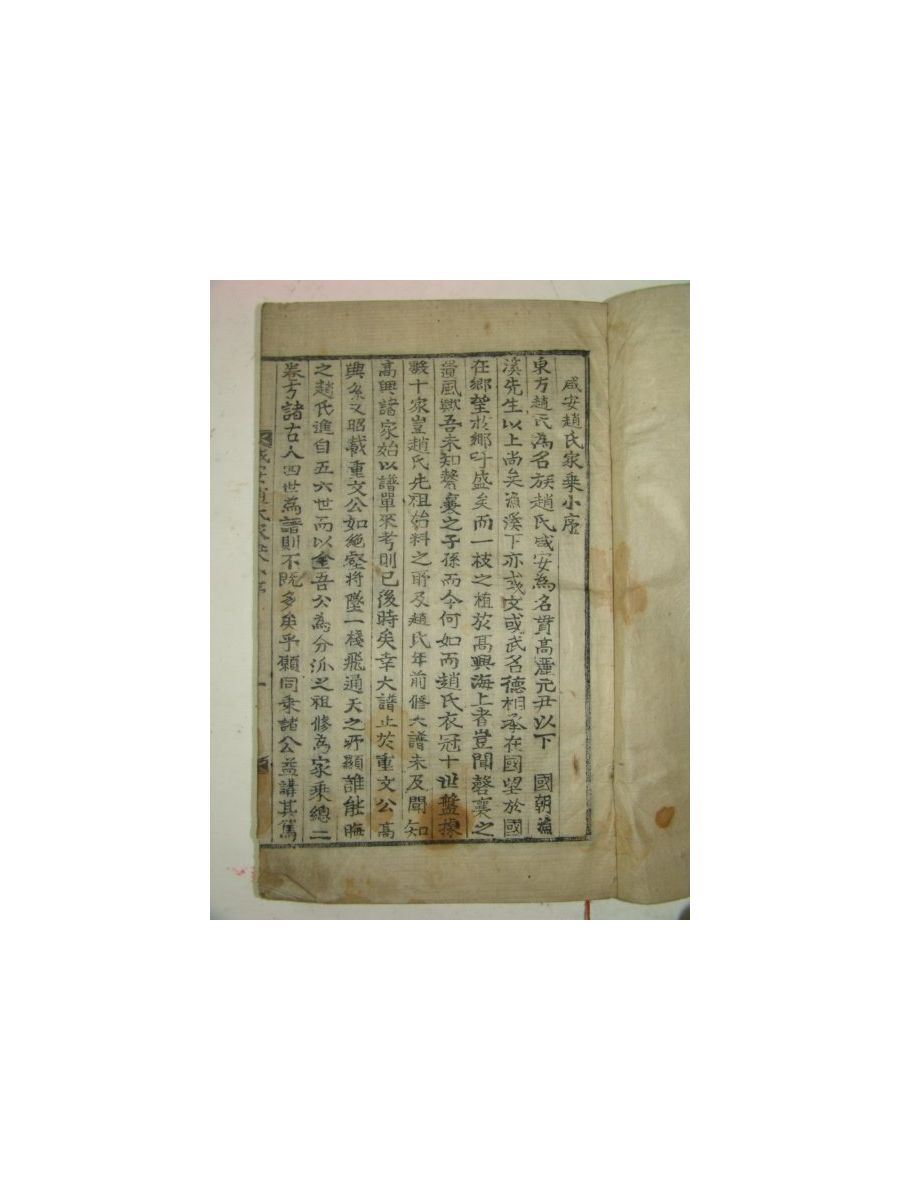 咸安趙氏家乗小序
東方趙氏為名族趙氏咸安為名貫高麗元尹以下 國朝漁
溪先生以上尚矣漁溪下亦或文或武名德相承在國望於國
在郷望於郷吁盛矣而一枝之植於高興海上者豈聞磬襄之
遺風歟吾未知磬襄之子孫而今何如而趙氏衣冠十世盤據
數十家豈趙氏先祖始料之所及趙氏年前修大譜未及聞知
高興諸家始以譜單來考則已後時矣幸大譜止於重文公高
興系又昭載重文公如絶壑將墜一棧飛通天之所顯誰能晦
之趙氏進自五六世而以金吾公為分派之祖修為家乘總二
卷方諸古人四世為譜則不既多矣乎願同乘諸公益講其篤
咸安趙氏家乘小序 一